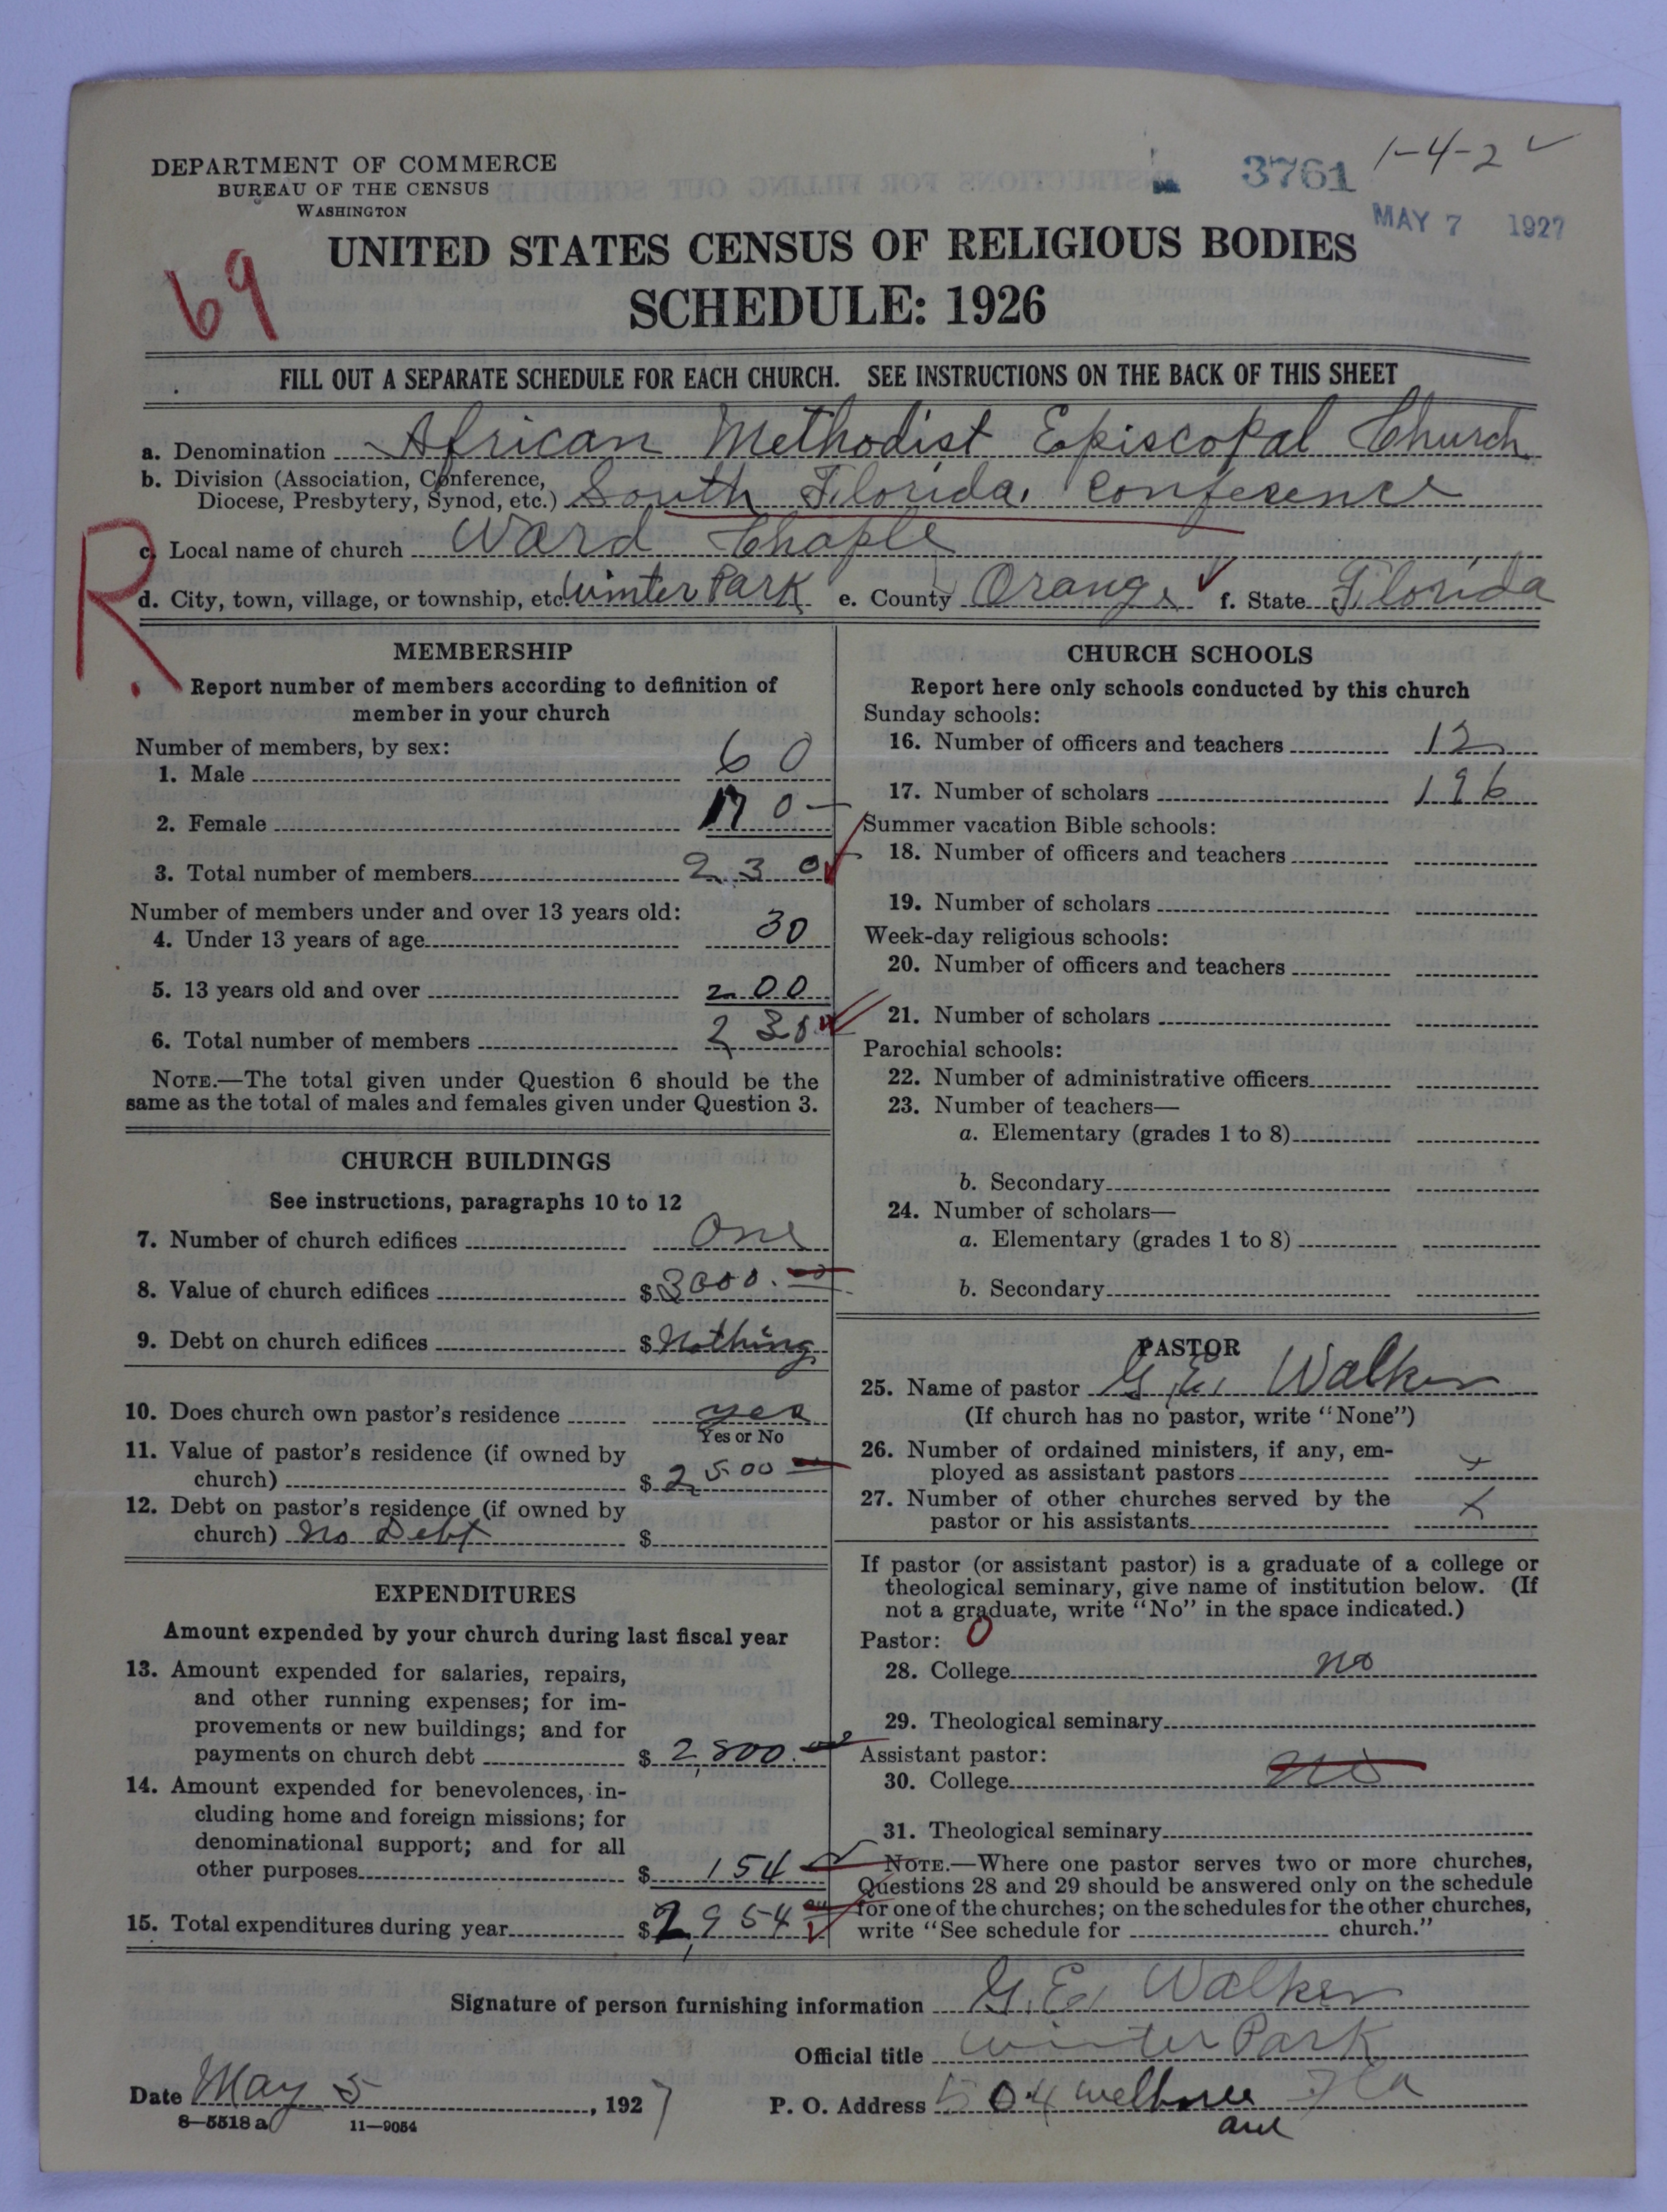 DEPARTMENT OF COMMERCE
BUREAU OF THE CENSUS
WASHINGTON
3761
1-4-2
MAY 7 1927
69
UNITED STATES CENSUS OF RELIGIOUS BODIES
SCHEDULE: 1926
FILL OUT A SEPARATE SCHEDULE FOR EACH CHURCH. SEE INSTRUCTIONS ON THE BACK OF THIS SHEET
a. Denomination African Methodist Episcopal Church
b. Division (Association, Conference,
Diocese, Presbytery, Synod, etc.) South Florida. Conference
R.
c. Local name of church Ward Chaple
d. City, town, village, or township, etc. Winter Park e. County Orange f. State Florida
MEMBERSHIP
Report number of members according to definition of
member in your church
Number of members, by sex:
1. Male 60
2. Female 170
3. Total number of members 230
Number of members under and over 13 years old:
4. Under 13 years of age 30
5. 13 years old and over 200
6. Total number of members 230
NOTE.—The total given under Question 6 should be the
same as the total of males and females given under Question 3.
CHURCH BUILDINGS
See instructions, paragraphs 10 to 12
7. Number of church edifices One
8. Value of church edifices $ 3000.00
9. Debt on church edifices $ Nothing
10. Does church own pastor's residence yes
Yes or No
11. Value of pastor's residence (if owned by
church) $ 2500
12. Debt on pastor's residence (if owned by
church) No Debt $
EXPENDITURES
Amount expended by your church during last fiscal year
13. Amount expended for salaries, repairs,
and other running expenses; for im-
provements or new buildings; and for
payments on church debt $ 2,800.
14. Amount expended for benevolences, in-
cluding home and foreign missions; for
denominational support; and for all
other purposes $ 154
15. Total expenditures during year $ 2,954
CHURCH SCHOOLS
Report here only schools conducted by this church
Sunday schools:
16. Number of officers and teachers 12
17. Number of scholars 196
Summer vacation Bible schools:
18. Number of officers and teachers
19. Number of scholars
Week-day religious schools:
20. Number of officers and teachers
21. Number of scholars
Parochial schools:
22. Number of administrative officers
23. Number of teachers—
a. Elementary (grades 1 to 8)
b. Secondary
24. Number of scholars—
a. Elementary (grades 1 to 8)
b. Secondary
PASTOR
25. Name of pastor G. E. Walker
(If church has no pastor, write "None")
26. Number of ordained ministers, if any, em-
ployed as assistant pastors x
27. Number of other churches served by the
pastor or his assistants x
If pastor (or assistant pastor) is a graduate of a college or
theological seminary, give name of institution below. (If
not a graduate, write "No" in the space indicated.)
Pastor: 0
28. College no
29. Theological seminary
Assistant pastor:
30. College no
31. Theological seminary
NOTE.—Where one pastor serves two or more churches,
Questions 28 and 29 should be answered only on the schedule
for one of the churches; on the schedules for the other churches,
write "See schedule for church."
Signature of person furnishing information G. E. Walker
Official title Winter Park
Date May 5, 1927
P. O. Address 504 Fla
ave
8—5518 a 11—9054